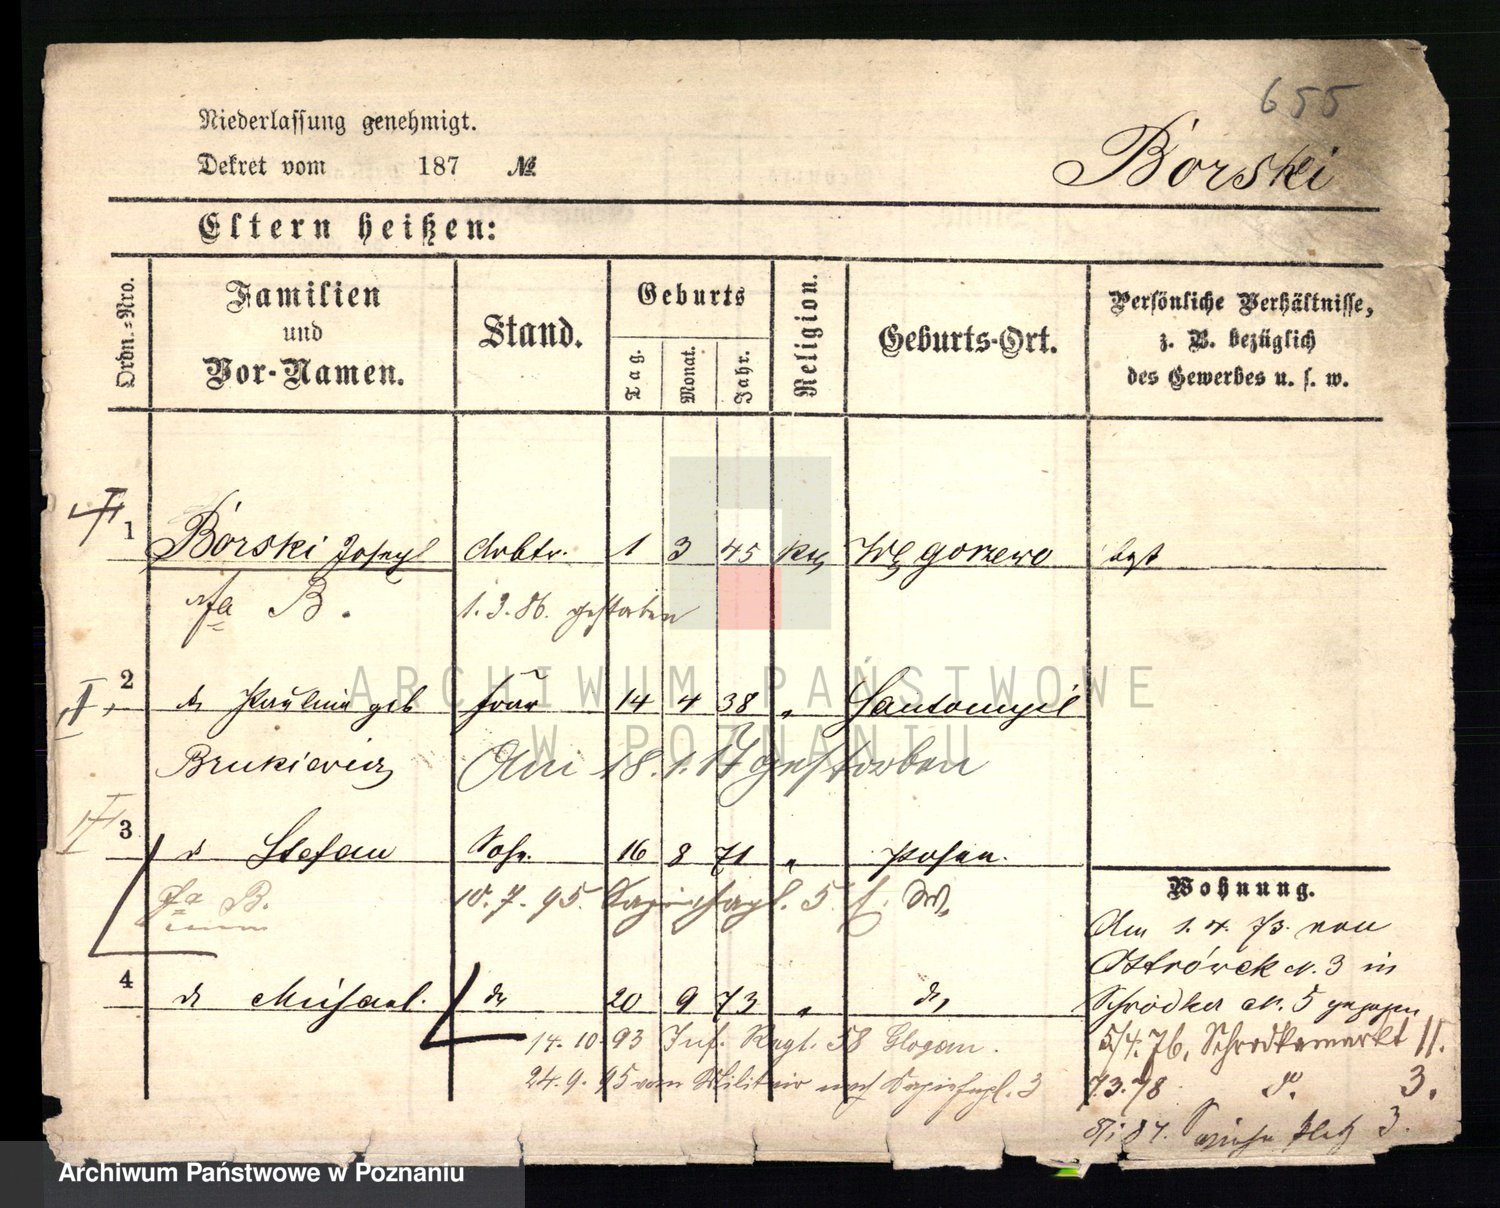 655
Niederlassung genehmigt.
Dekret vom 187 №
Borski
Eltern heißen:
Ordn.-Nro.
Familien und Vor-Namen.
Stand.
Geburts
Tag. Monat. Jahr.
Religion.
Geburts-Ort.
Persönliche Verhältnisse, z. B. bezüglich des Gewerbes u. s. w.
1 Borski Joseph Arbtr. 1 3 45 kth Gorzewo
B. 1.3.86. gestorben
2 Paulina geb Frau 14 4 38 " Santomysil
Brukiewicz Am 18.1.17 gestorben
3 Stefan Sohn. 16 8 71 " Posen.
B. 10.7.95. 5.
4 Michael. 20 9 73 "
14.10.93 Inf. Regt. 58 Glogau.
24.9.95 vom Militair nach 3
Wohnung.
Am 1.4.73. von
Ostrówek N. 3 in
Schrodka N. 5 gezogen
5/4.76. Schrodkamarkt 11.
7.3.78 3.
Platz 3.
ARCHIWUM PAŃSTWOWE
W POZNANIU
Archiwum Państwowe w Poznaniu